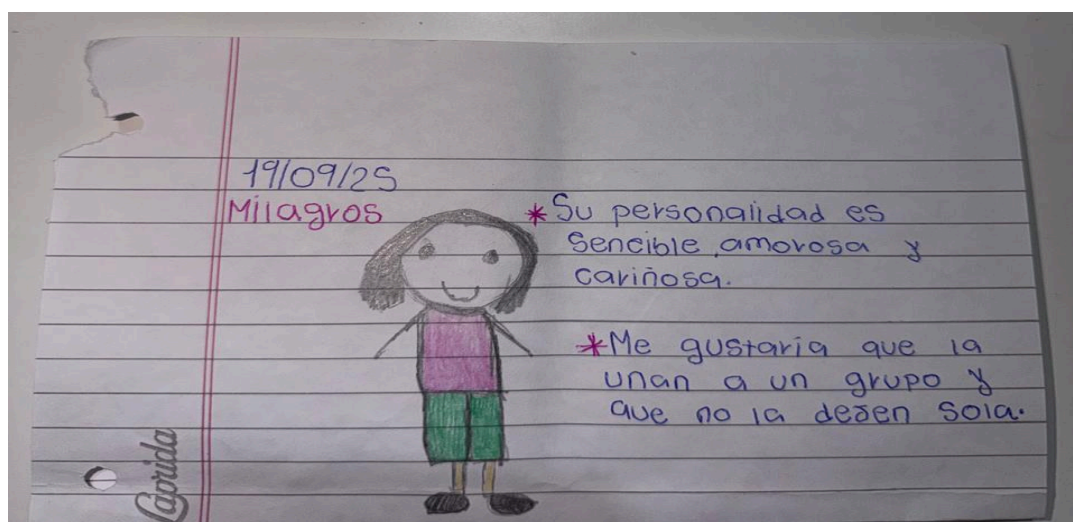 19/09/25
Milagros
* Su personalidad es
sencible, amorosa y
cariñosa.
* Me gustaria que la
unan a un grupo y
que no la dejen sola.
Laprida